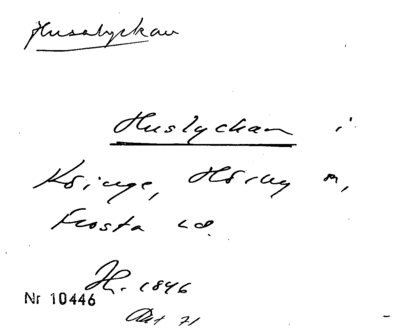 Husalyckan
Huslyckan i
Köinge, Höing sn,
Frosta hd.
H. 1846
Nr 10446
Akt 71